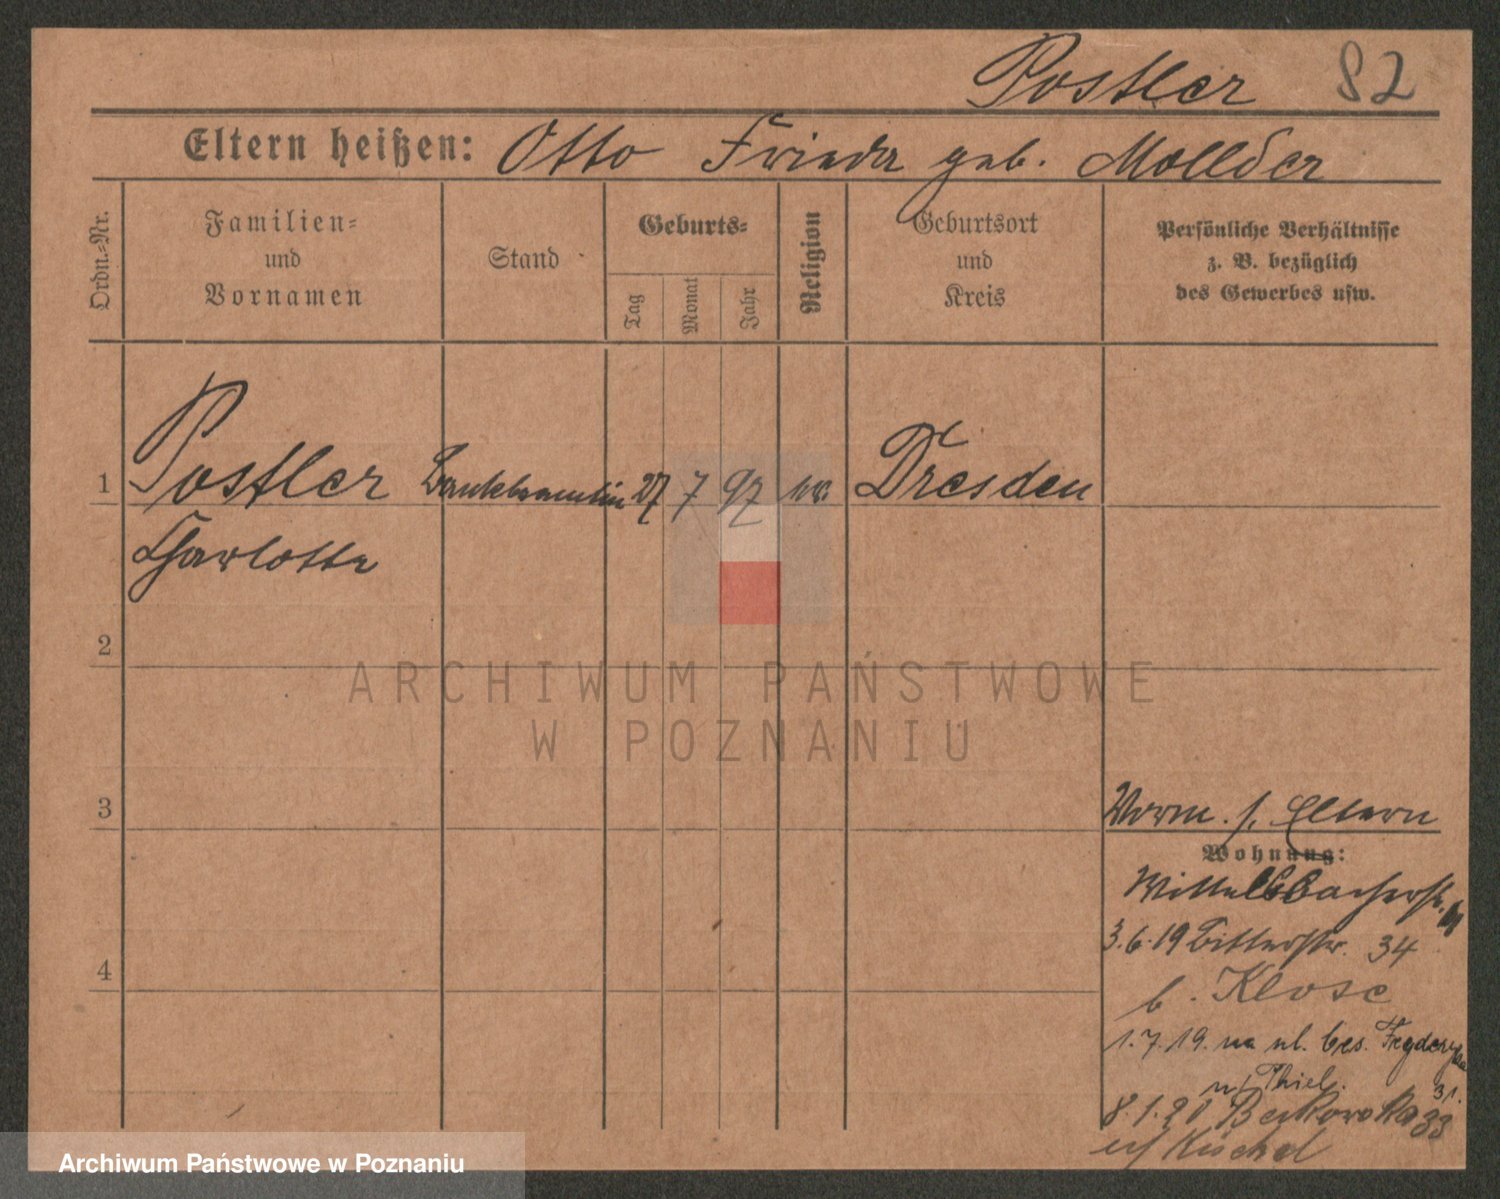 Postler 82
Eltern heißen: Otto Frieda geb. Mollder
Ordn.-Nr.
Familien-
und
Vornamen
Stand
Geburts-
Tag
Monat
Jahr
Religion
Geburtsort
und
Kreis
Persönliche Verhältnisse
z. B. bezüglich
des Gewerbes usw.
1 Postler Bankbeamtin 27 7 97 ev. Dresden
Charlotte
2
ARCHIWUM PAŃSTWOWE
W POZNANIU
3
Vorm. s. Eltern
Wohnung:
Wittelsbacherstr.
3.6.19 Bitterstr. 34
4
b. Klose
1.7.19. na ul. ces. Fryderyka
31.
u/ Thiel.
8.1.20 Berkowska 33
u/ Küchel
Archiwum Państwowe w Poznaniu